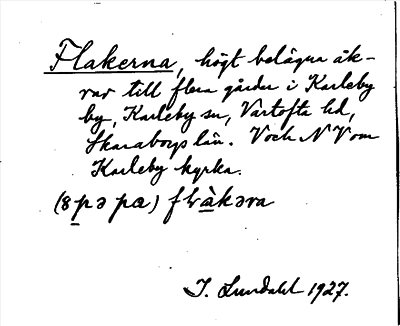 Flakerna, högt belägna åk-
rar till flera gårdar i Karleby
by, Karleby sn, Vartofta hd,
Skaraborgs län. V och NV om
Karleby kyrka.
(8 pə pæ) flàkəra
I. Lundahl 1927.